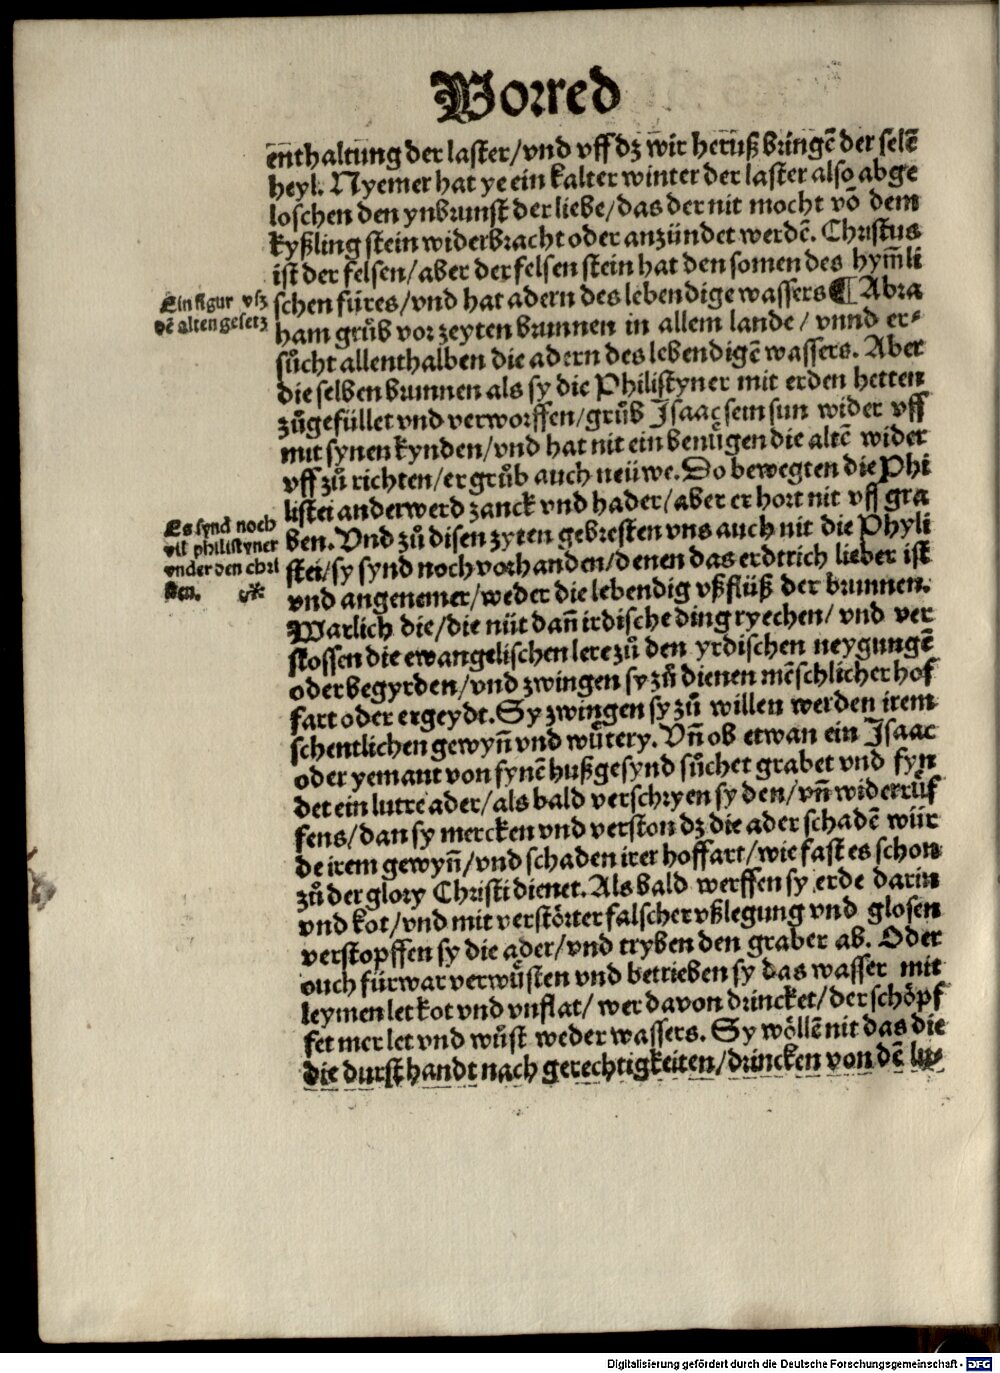 Vorred
enthaltung der laster/vnd vff dz wir herußbringē der selē
heyl. Nyemer hat ye ein kalter winter der laster also abge
loschen den ynbrunst der liebe/das der nit mocht vō dem
kyßling stein widerbracht oder anzündet werdē. Christus
ist der felsen/aber der felsen stein hat den somen des hym̄li
schen füres/vnd hat adern des lebendige wassers ¶ Abra
Ein figur vsz
dē alten gesetz
ham grůb vor zeyten brunnen in allem lande/ vnnd er⸗
sůcht allenthalben die adern des lebendigē wassers. Aber
die selben brunnen als sy die Philistyner mit erden hetten
zůgefüllet vnd verworffen/grůb Isaac sein sun wider vff
mit synen kynden/vnd hat nit ein benůgen die altē wider
vff zů richten/er grůb auch neüwe. Do bewegten die Phi
listei anderwerd zanck vnd hader/aber er hort nit vff gra
ben. Vnd zů disen zyten gebresten vns auch nit die Phyli
Es synd noch
vil philistyner
vnder den chri
sten.
stei/sy synd noch vorhanden/denen das erdtrich lieber ist
vnd angenemer/weder die lebendig vßflüß der brunnen.
Warlich die/die nüt dañ irdische ding ryechen/ vnd ver
stossen die ewangelischen lere zů den yrdischen neygungē
oder begyrden/vnd zwingen sy zů dienen mēschlicher hof
fart oder ergeydt. Sy zwingen sy zů willen werden irem
schentlichen gewyñ vnd wůtery. Vñ ob etwan ein Isaac
oder yemant von synē hußgesynd sůchet grabet vnd fyn
det ein lutre ader/als bald verschryen sy den/vñ widerrůf
fens/dan sy mercken vnd verston dz die ader schadē wür
de irem gewyñ/vnd schaden irer hoffart/wie fast es schon
zů der glory Christi dienet. Als bald werffen sy erde darin
vnd kot/vnd mit verstörter falscher vßlegung vnd glosen
verstopffen sy die ader/vnd tryben den graber ab. Oder
ouch fürwar verwůsten vnd betrieben sy das wasser mit
leymen let kot vnd vnflat/ wer davon drincket/der schöpf
fet mer let vnd wůst weder wassers. Sy wöllē nit das die
die durst handt nach gerechtigkeiten/drincken von dē lu⸗
Digitalisierung gefördert durch die Deutsche Forschungsgemeinschaft - DFG